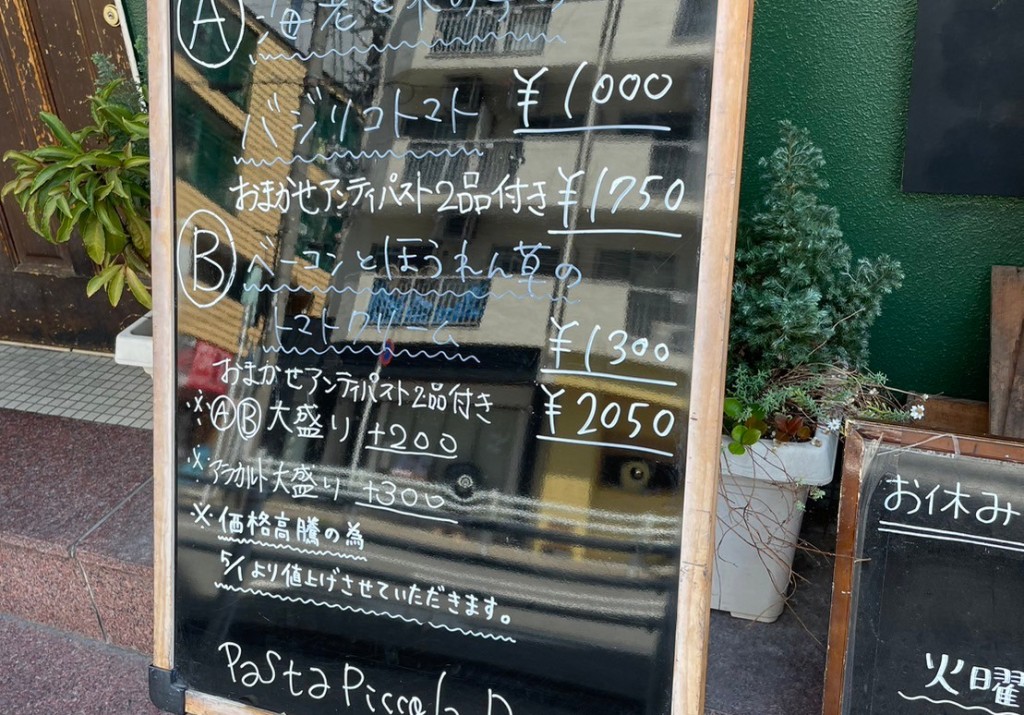 Ⓐ 海老ときのこの
バジリコトマト ¥1000
おまかせアンティパスト2品付き ¥1750
Ⓑ ベーコンとほうれん草の
トマトクリーム ¥1300
おまかせアンティパスト2品付き ¥2050
※ⒶⒷ大盛り +200
※アラカルト大盛り +300
※価格高騰の為
5/1より値上げさせていただきます。
Pasta Piccola
お休み
火曜